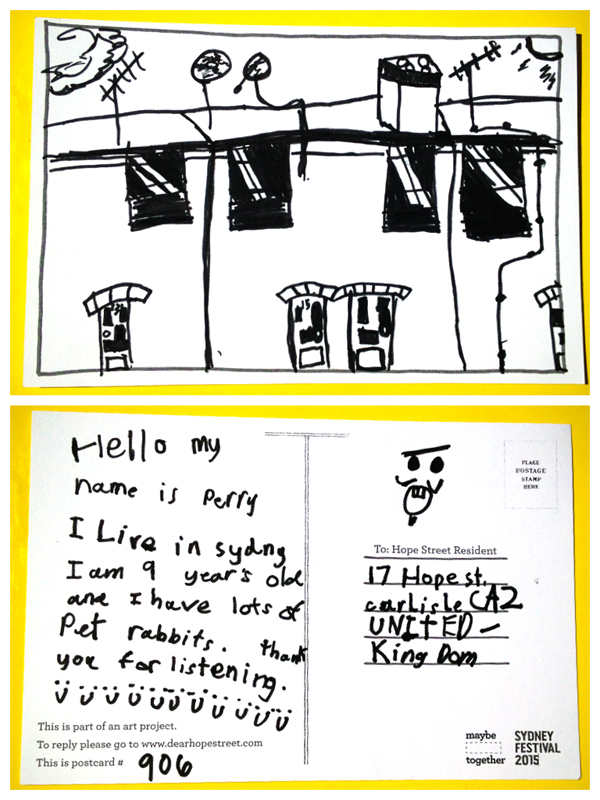 15
Hello my
name is perry
I Live in sydny
I am 9 year's old
and I have lots of
Pet rabbits. thank
you for listening.
This is part of an art project.
To reply please go to www.dearhopestreet.com
This is postcard # 906
PLACE
POSTAGE
STAMP
HERE
To: Hope Street Resident
17 Hope st.
carlisle CA2
UNITED -
King Dom
maybe
together
SYDNEY
FESTIVAL
2015